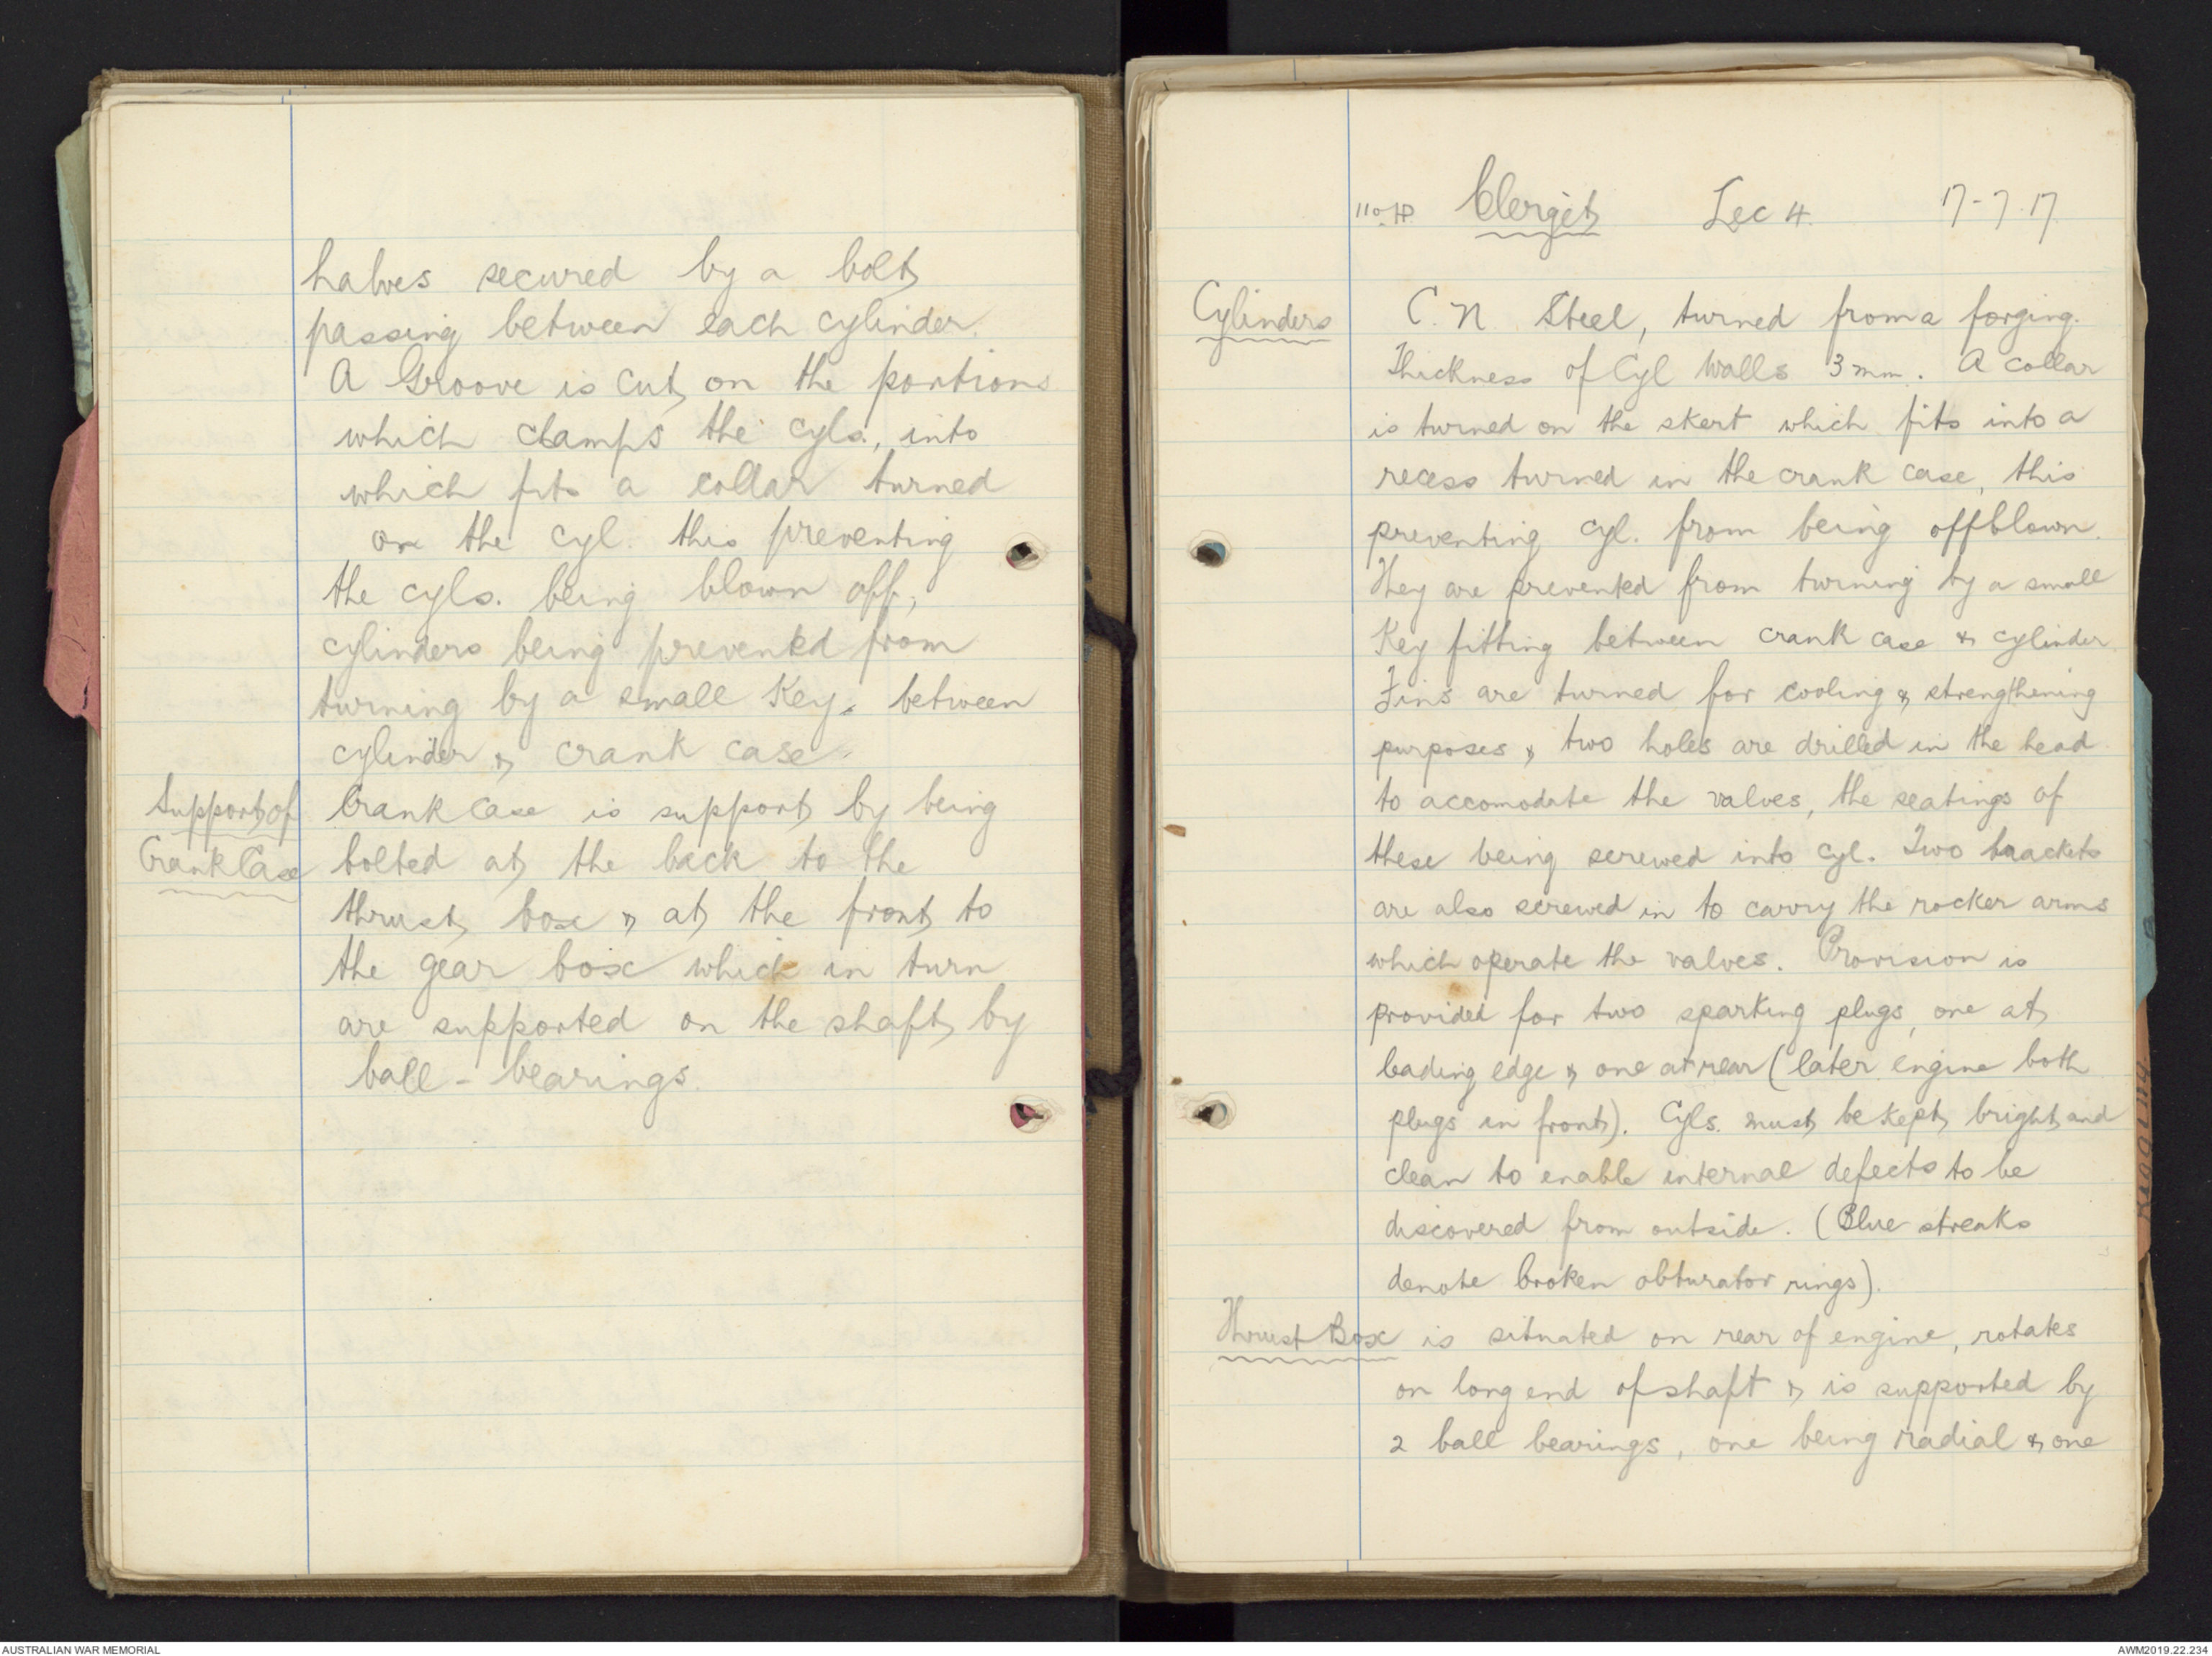 halves secured by a bolt
passing between each cylinder.
A Groove is cut on the portions
which clamps the cyls., into
which fits a collar turned
on the cyl. this preventing
the cyls. being blown off,
cylinders being prevented from
turning by a small Key. between
cylinder & crank case.
Support of
Crank Case
Crank Case is support by being
bolted at the back to the
thrust box & at the front to
the gear box which in turn
are supported on the shaft by
ball-bearings.
110 HP. Clerget Lec 4. 17-7-17
Cylinders C.N. Steel, turned from a forging.
Thickness of Cyl Walls 3 mm. A collar
is turned on the skert which fits into a
recess turned in the crank case, this
preventing cyl. from being offblown.
They are prevented from turning by a small
Key fitting between crank case & cylinder.
Fins are turned for cooling & strengthening
purposes & two holes are drilled in the head
to accomodate the valves, the seatings of
these being screwed into cyl. Two brackets
are also screwed in to carry the rocker arms
which operate the valves. Provision is
provided for two sparking plugs, one at
leading edge & one at rear (later engine both
plugs in front). Cyls. must be kept bright and
clean to enable internal defects to be
discovered from outside. (Blue streaks
denote broken obturator rings).
Thrust Box is situated on rear of engine, rotates
on long end of shaft & is supported by
2 ball bearings, one being radial & one
AUSTRALIAN WAR MEMORIAL
AWM2019.22.234